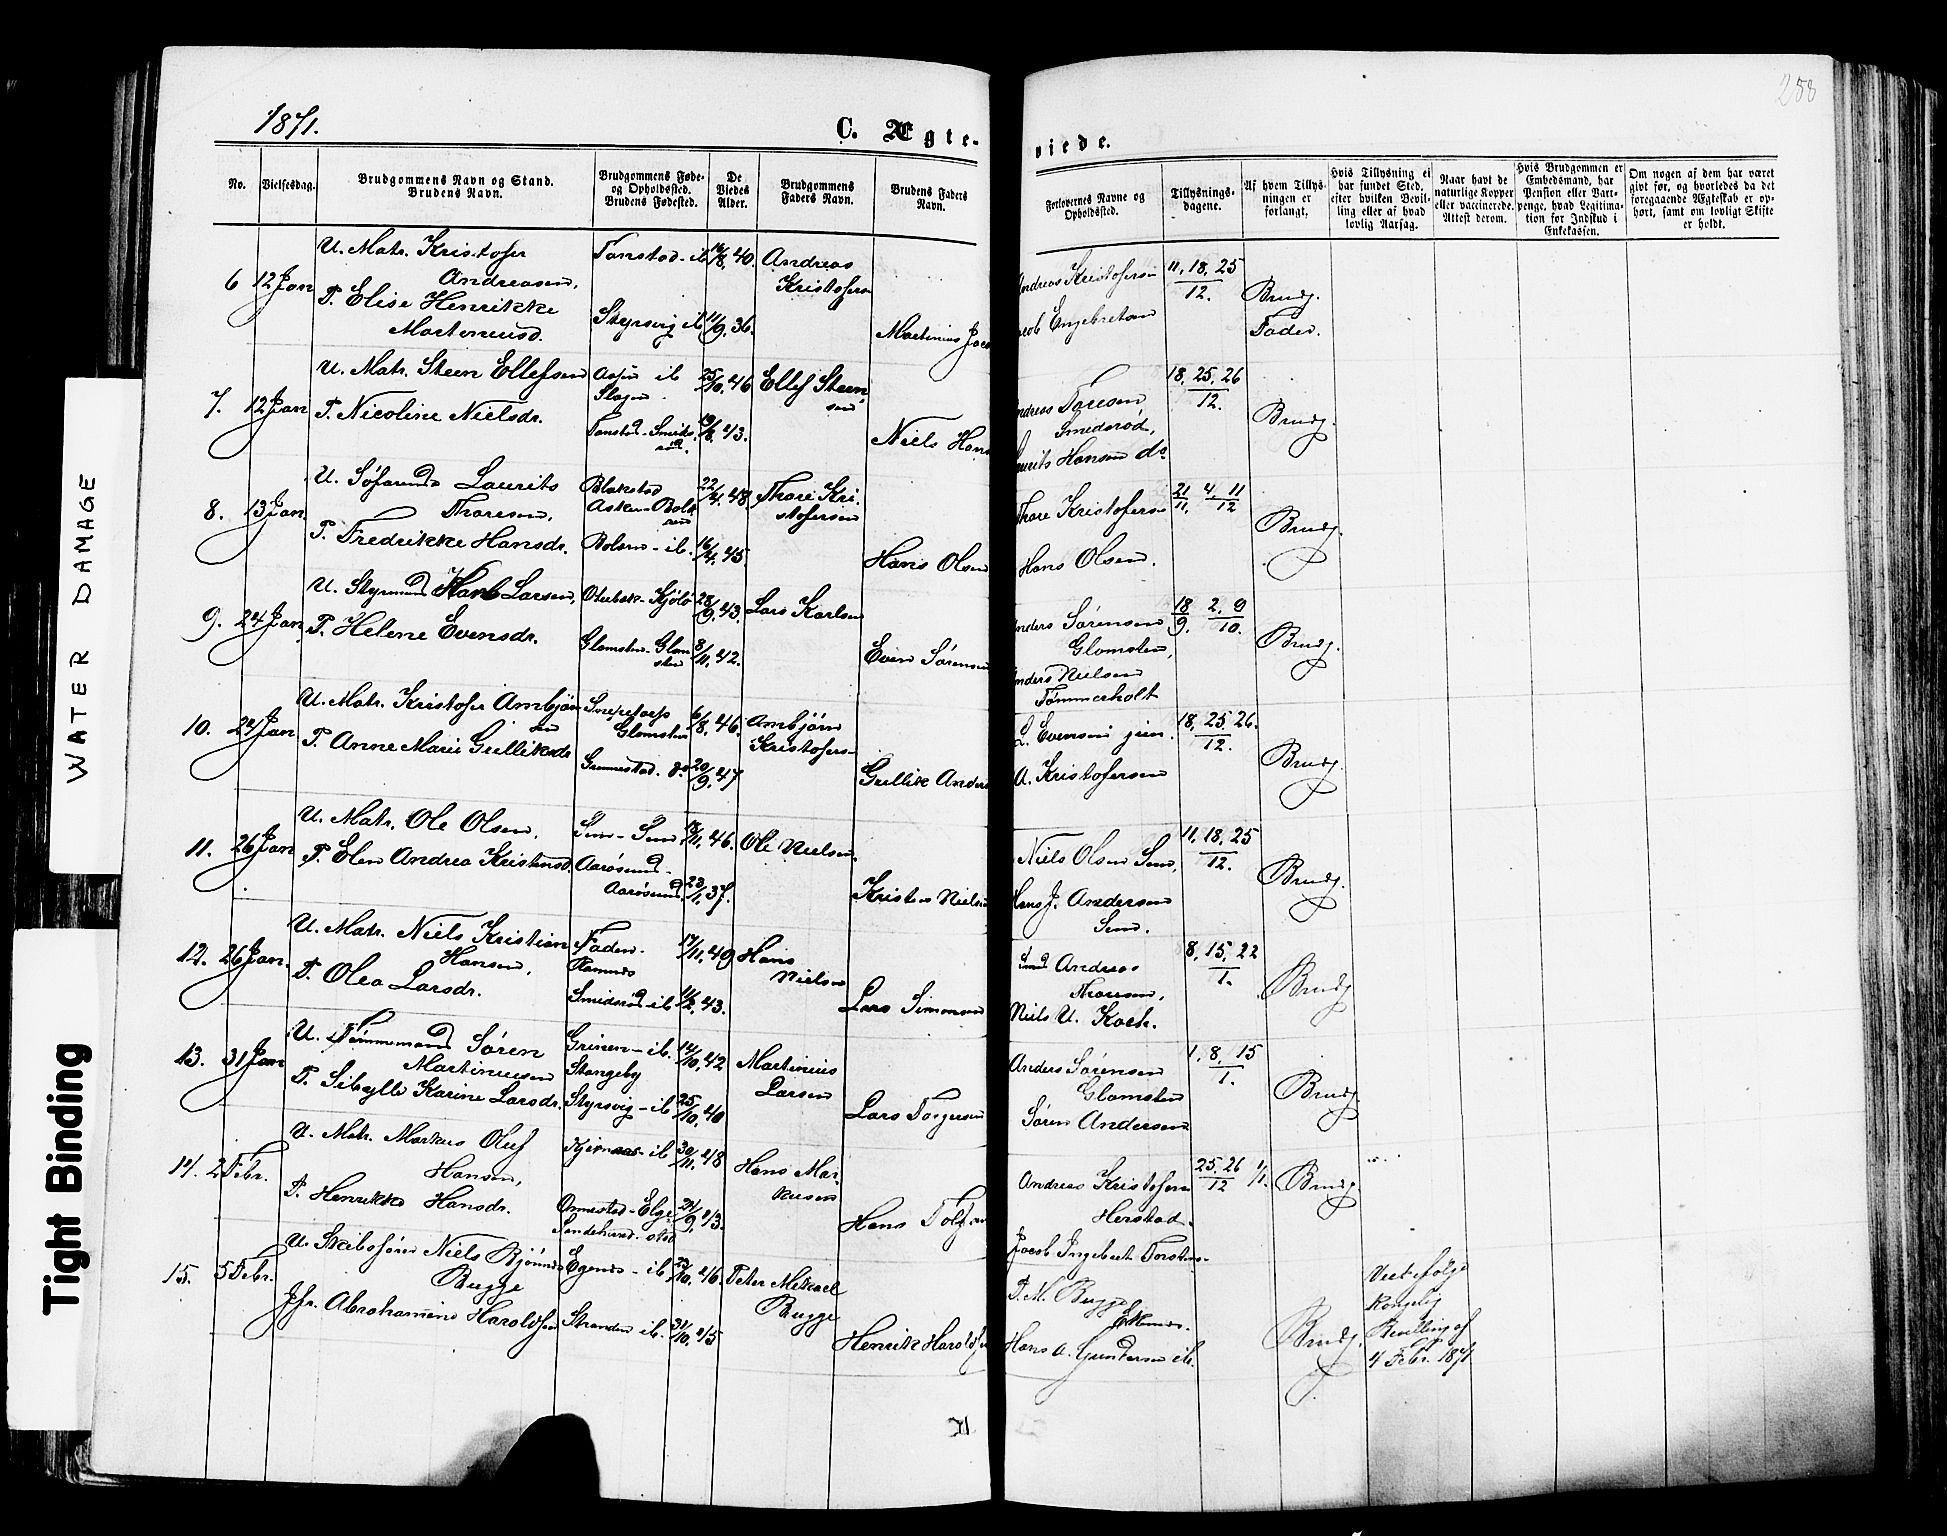 WATER DAMAGE
Tight Binding
1871.
C. Ægteviede.
258
No.
Vielsesdag.
Brudgommens Navn og Stand.
Brudens Navn.
Brudgommens Føde-
og Opholdsted.
Brudens Fødested.
De
Viedes
Alder.
Brudgommens
Faders Navn.
Brudens Faders
Navn.
Forlovernes Navne og
Opholdsted.
Tillysnings-
dagene.
Af hvem Tillys-
ningen er
forlangt.
Hvis Tillysning ei
har fundet Sted,
efter hvilken Bevil-
ling eller af hvad
lovlig Aarsag.
Naar havt de
naturlige Kopper
eller vaccinerede.
Attest derom.
Hvis Brudgommen er
Embedsmand, har
Pension eller Vart-
penge, hvad Legitima-
tion for Indskud i
Enkekassen.
Om nogen af dem har været
gift før, og hvorledes da det
foregaaende Ægteskab er op-
hørt, samt om lovligt Skifte
er holdt.
6 12 Jan
U. Matr. Kristofer
Andreasen,
P. Elise Henrikke
Martinusd.
Tanstad - ib
Styrsvig ib
18/8. 40.
11/9. 36.
Andreas
Kristofersn
Martinius Jac
Andreas Kristofersn
Jacob Engebretsen
11, 18, 25
12.
Brudg.
Fader.
7. 12 Jan
U. Matr. Steen Ellefsen
P. Nicoline Nielsdr.
ib
Slagen
Tanstad - Smids-
rød.
25/10. 46
19/8. 43.
Ellef Steen
sen
Niels Hans
Andreas Toresen
Smedsrød,
Laurits Hansen do
18, 25, 26
12.
Brudg.
8. 13 Jan.
U. Søfarende Laurits
Thoresen,
P. Fredrikke Hansdr.
Blakstad
Asker - Bols
ren
Bolæren - ib.
22/4. 48.
16/4. 45.
Thore Kri-
stofersen
Hans Olsen
Thore Kristofersn
Hans Olsen.
21/11. 4, 11/12
Brudg.
9. 24 Jan
U. Styrmand Hans Larsen,
P. Helene Evensdr.
Oterbek - Kjølø
Glomsten - Glom-
sten
28/9. 43.
8/11. 42.
Lars Karlsen
Even Sørensen
Anders Sørensen
Glomsten,
Anders Nielsen
Tømmerholt
18/9. 2, 9/10.
Brudg.
10. 24 Jan
U. Matr. Kristofer Ambjørn
sen
P. Anne Marie Gulliksdr
Snepetorp
Glomsten
Gunnestad. do
6/8. 46.
20/9. 47
Ambjørn
Kristofersn
Gullik Anders
L. Evensen jun.
A. Kristofersen
18, 25, 26.
12.
Brudg.
11. 26 Jan
U. Matr. Ole Olsen.
P. Elen Andrea Kristensd.
Sem - Sem,
Aarøsund -
Aarøsund
18/11. 46.
23/1. 37.
Ole Nielsen.
Kristen Nielsen
Niels Olsen Sem,
Hans J. Andersen
Sem.
11, 18, 25
12.
Brudg.
12. 26 Jan.
U. Matr. Niels Kristian
Hansen,
P. Olea Larsdr.
Faden -
Ramnes
Smidsrød - ib.
17/11. 49
14/2. 43.
Hans
Nielsen
Lars Simonsen
Andreas
Thoresen,
Niels U. Koch.
8, 15, 22
1.
Brudg
13. 31 Jan
U. Tømmermand Søren
Martinusen
P. Sibylle Karine Larsdr.
Grinen - ib.
Stangeby
Styrsvig - ib
14/10. 42
25/10. 40
Martinius
Larsen
Lars Torgersen
Anders Sørensen
Glomsten
Søren Andersen
1, 8, 15
1.
Brudg.
14. 2 Febr.
U. Matr. Markus Oluf
Hansen,
P. Henrikke Hansdr.
Kjernaas - ib
Ormestad - Elge-
Sandeherred. stad
30/11. 48
24/9. 43.
Hans Mar-
kusen
Hans Tolfsen
Andreas Kristofersn
Herstad.
Jacob Ingebret Torstens-
25, 26/12 1/1.
Brudg.
15. 5 Febr.
U. Skibsfører Niels Bjønnes
Bugge
Jfr. Abrahamine Haroldsen
Egenes - ib.
Stranden ib.
23/10. 46.
31/10. 45
Peter Mikael
Bugge
Henrik Haroldsen
P. M. Bugge
Ekenes.
Hans A. Gundersen ib.
Brudg.
Ved ifølge
Kongelig
Bevilling af
4 Febr. 1871